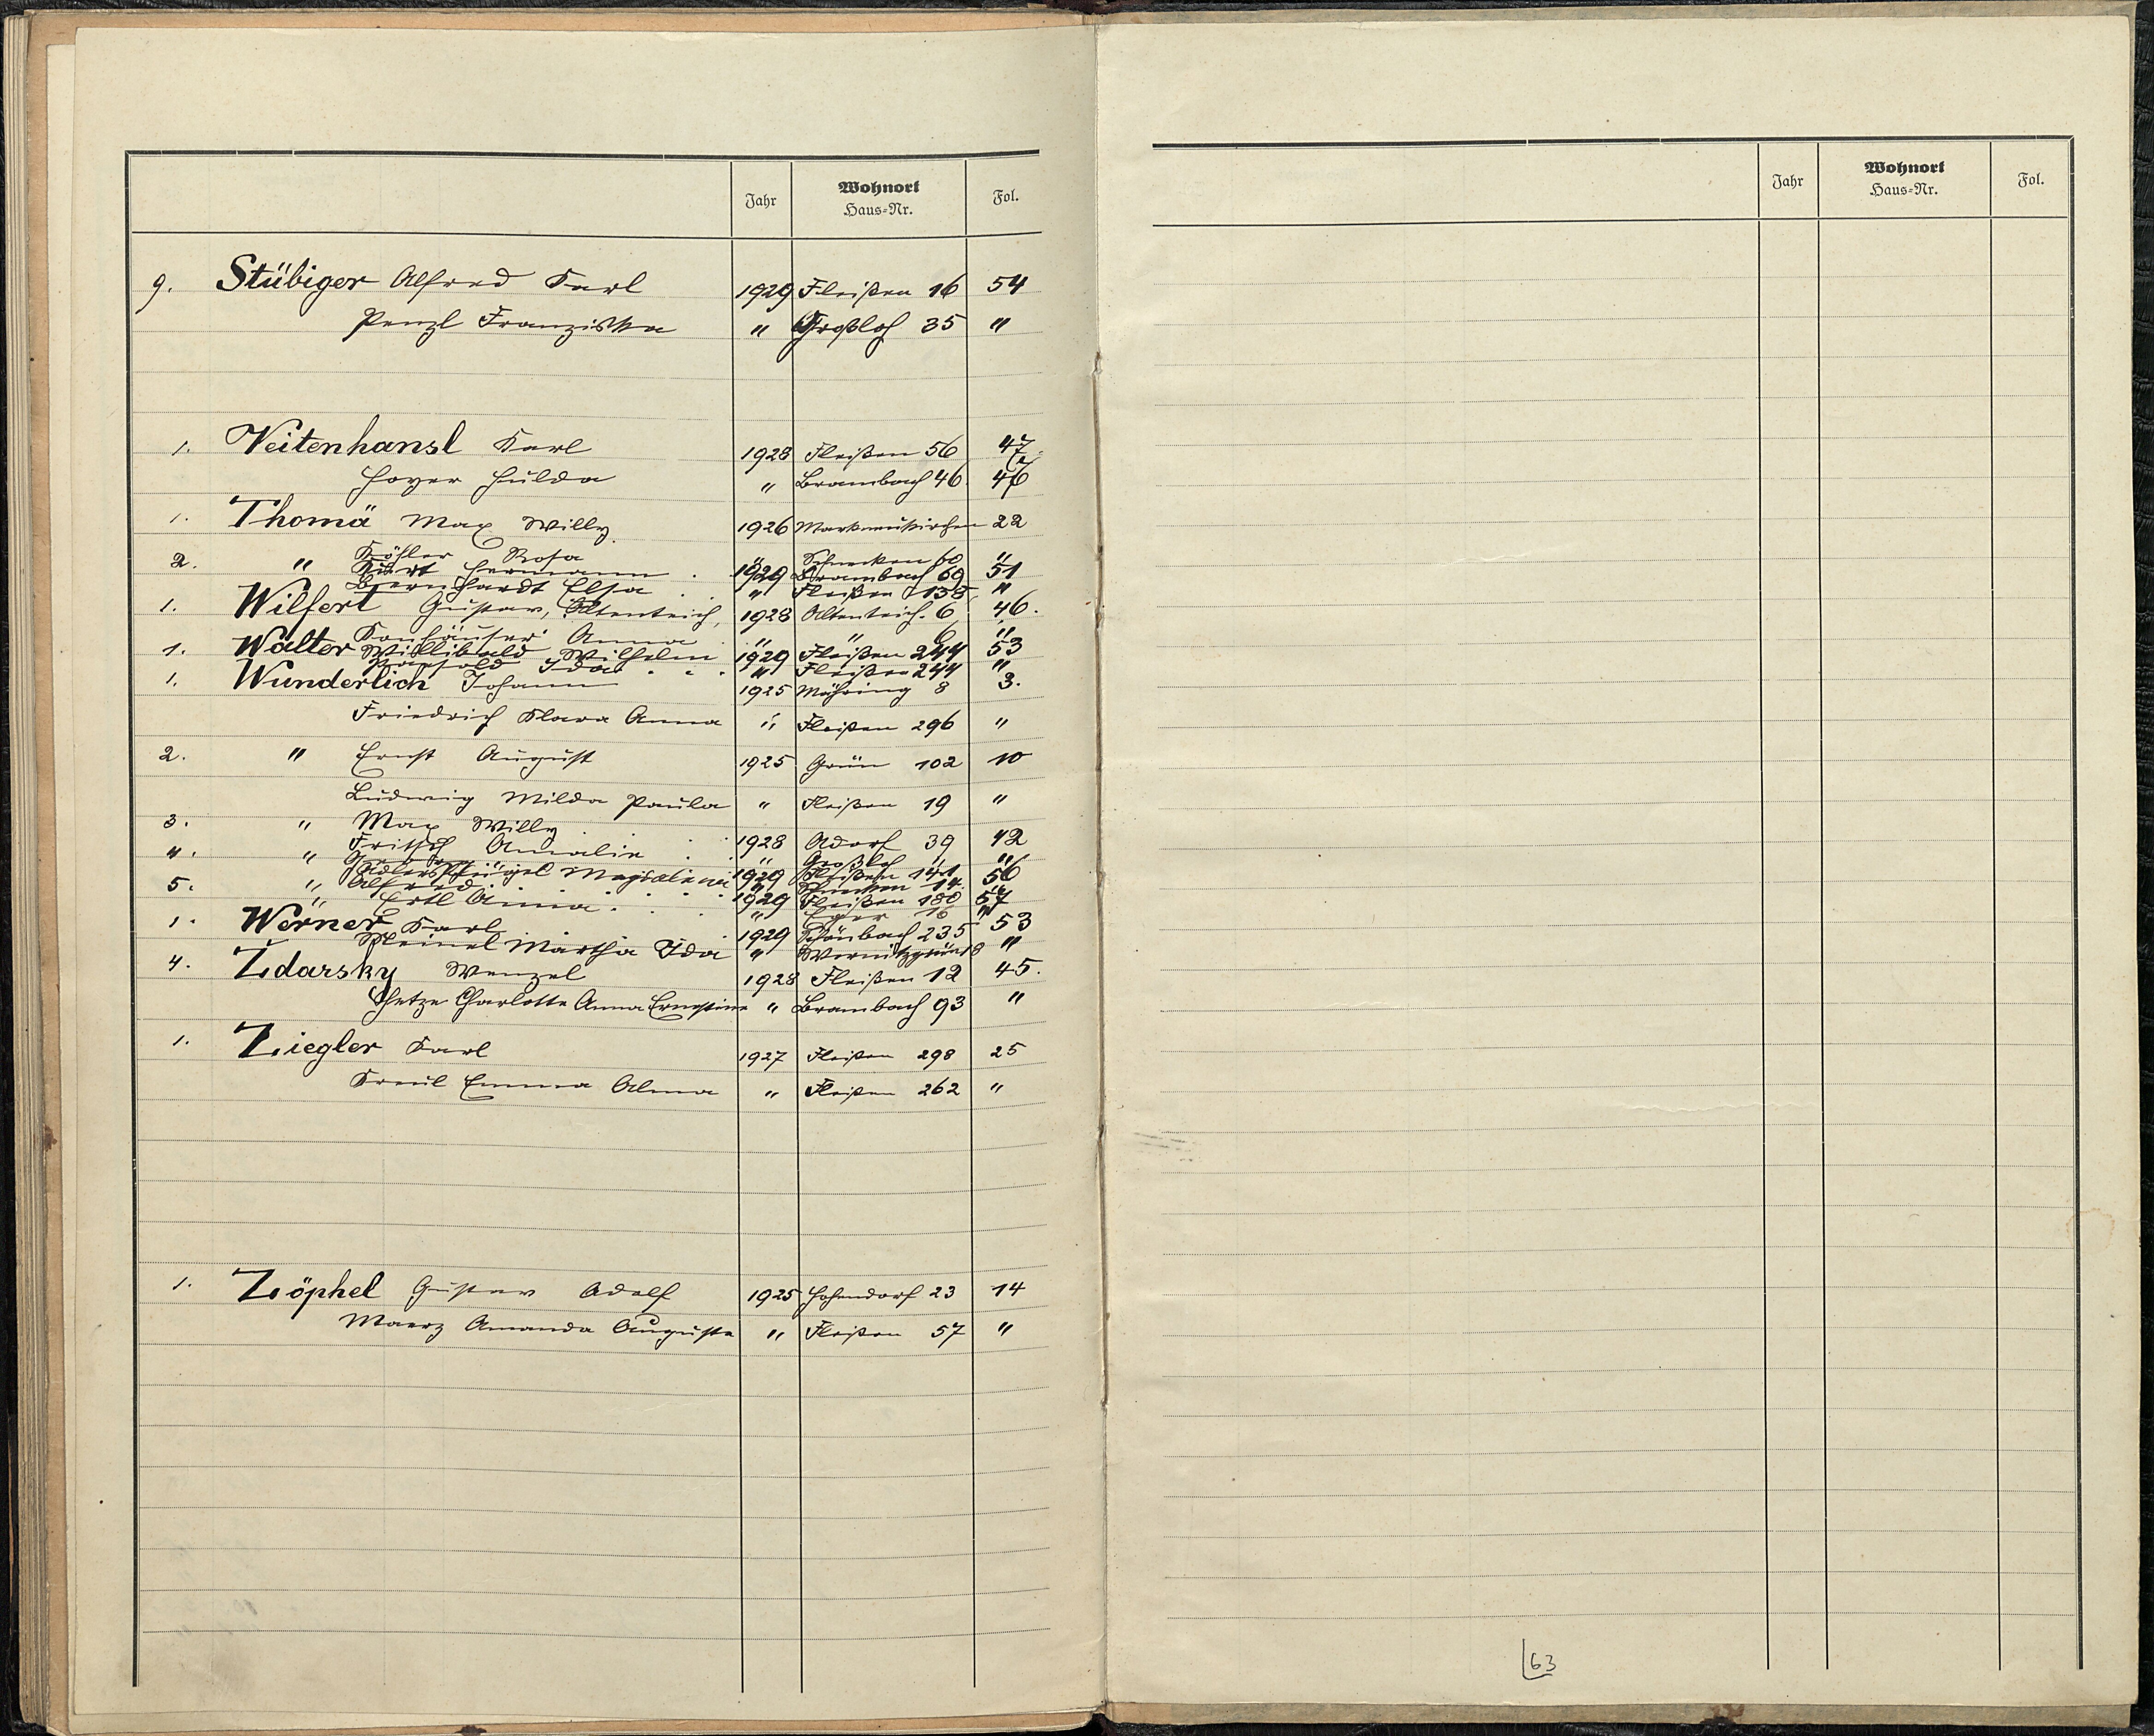 Jahr Wohnort Haus-Nr. Fol.
9. Stübiger Alfred Karl 1929 Fleißen 16 54
Penzl Franziska " Großloh 35 "
1. Veitenhansl Karl 1928 Fleißen 56 47
Hoyer Hulda " Brambach 46 46
1. Thomä Max Willy 1926 Markneukirchen 22
Köhler Rosa " Schnecken "
2. " Kurt Hermann 1929 Brambach 69 51
Bernhardt Elsa " Fleißen 138 "
1. Wilfert Gustav, Altenteich, 1928 Altenteich 6 46.
Anna " " 6 "
1. Walter Willibald Wilhelm 1929 Fleißen 244 53
Ida " Fleißen 244 "
1. Wunderlich Johann 1925 Mähring 8 3.
Friedrich Klara Anna " Fleißen 296 "
2. " Ernst August 1925 Grün 102 10
Ludwig Milda Paula " Fleißen 19 "
3. " Max Willy 1928 Adorf 39 42
Fritsch Amalie " Großloh "
4. " 1929 Fleißen 141 56
Magdalena " Schnecken 14 "
5. " Alfred 1929 Fleißen 180 57
Ertl Anna " Eger 16 "
1. Werner Karl 1929 Schönbach 235 53
Martha Ida " Wernitzgrün 18 "
4. Zdarsky Wenzel 1928 Fleißen 12 45.
Charlotte Anna Ernestine " Brambach 93 "
1. Ziegler Karl 1927 Fleißen 298 25
Kreul Emma Alma " Fleißen 262 "
1. Zöphel Gustav Adolf 1925 Hohendorf 23 14
Maerz Amanda Auguste " Fleißen 57 "
Jahr Wohnort Haus-Nr. Fol.
63